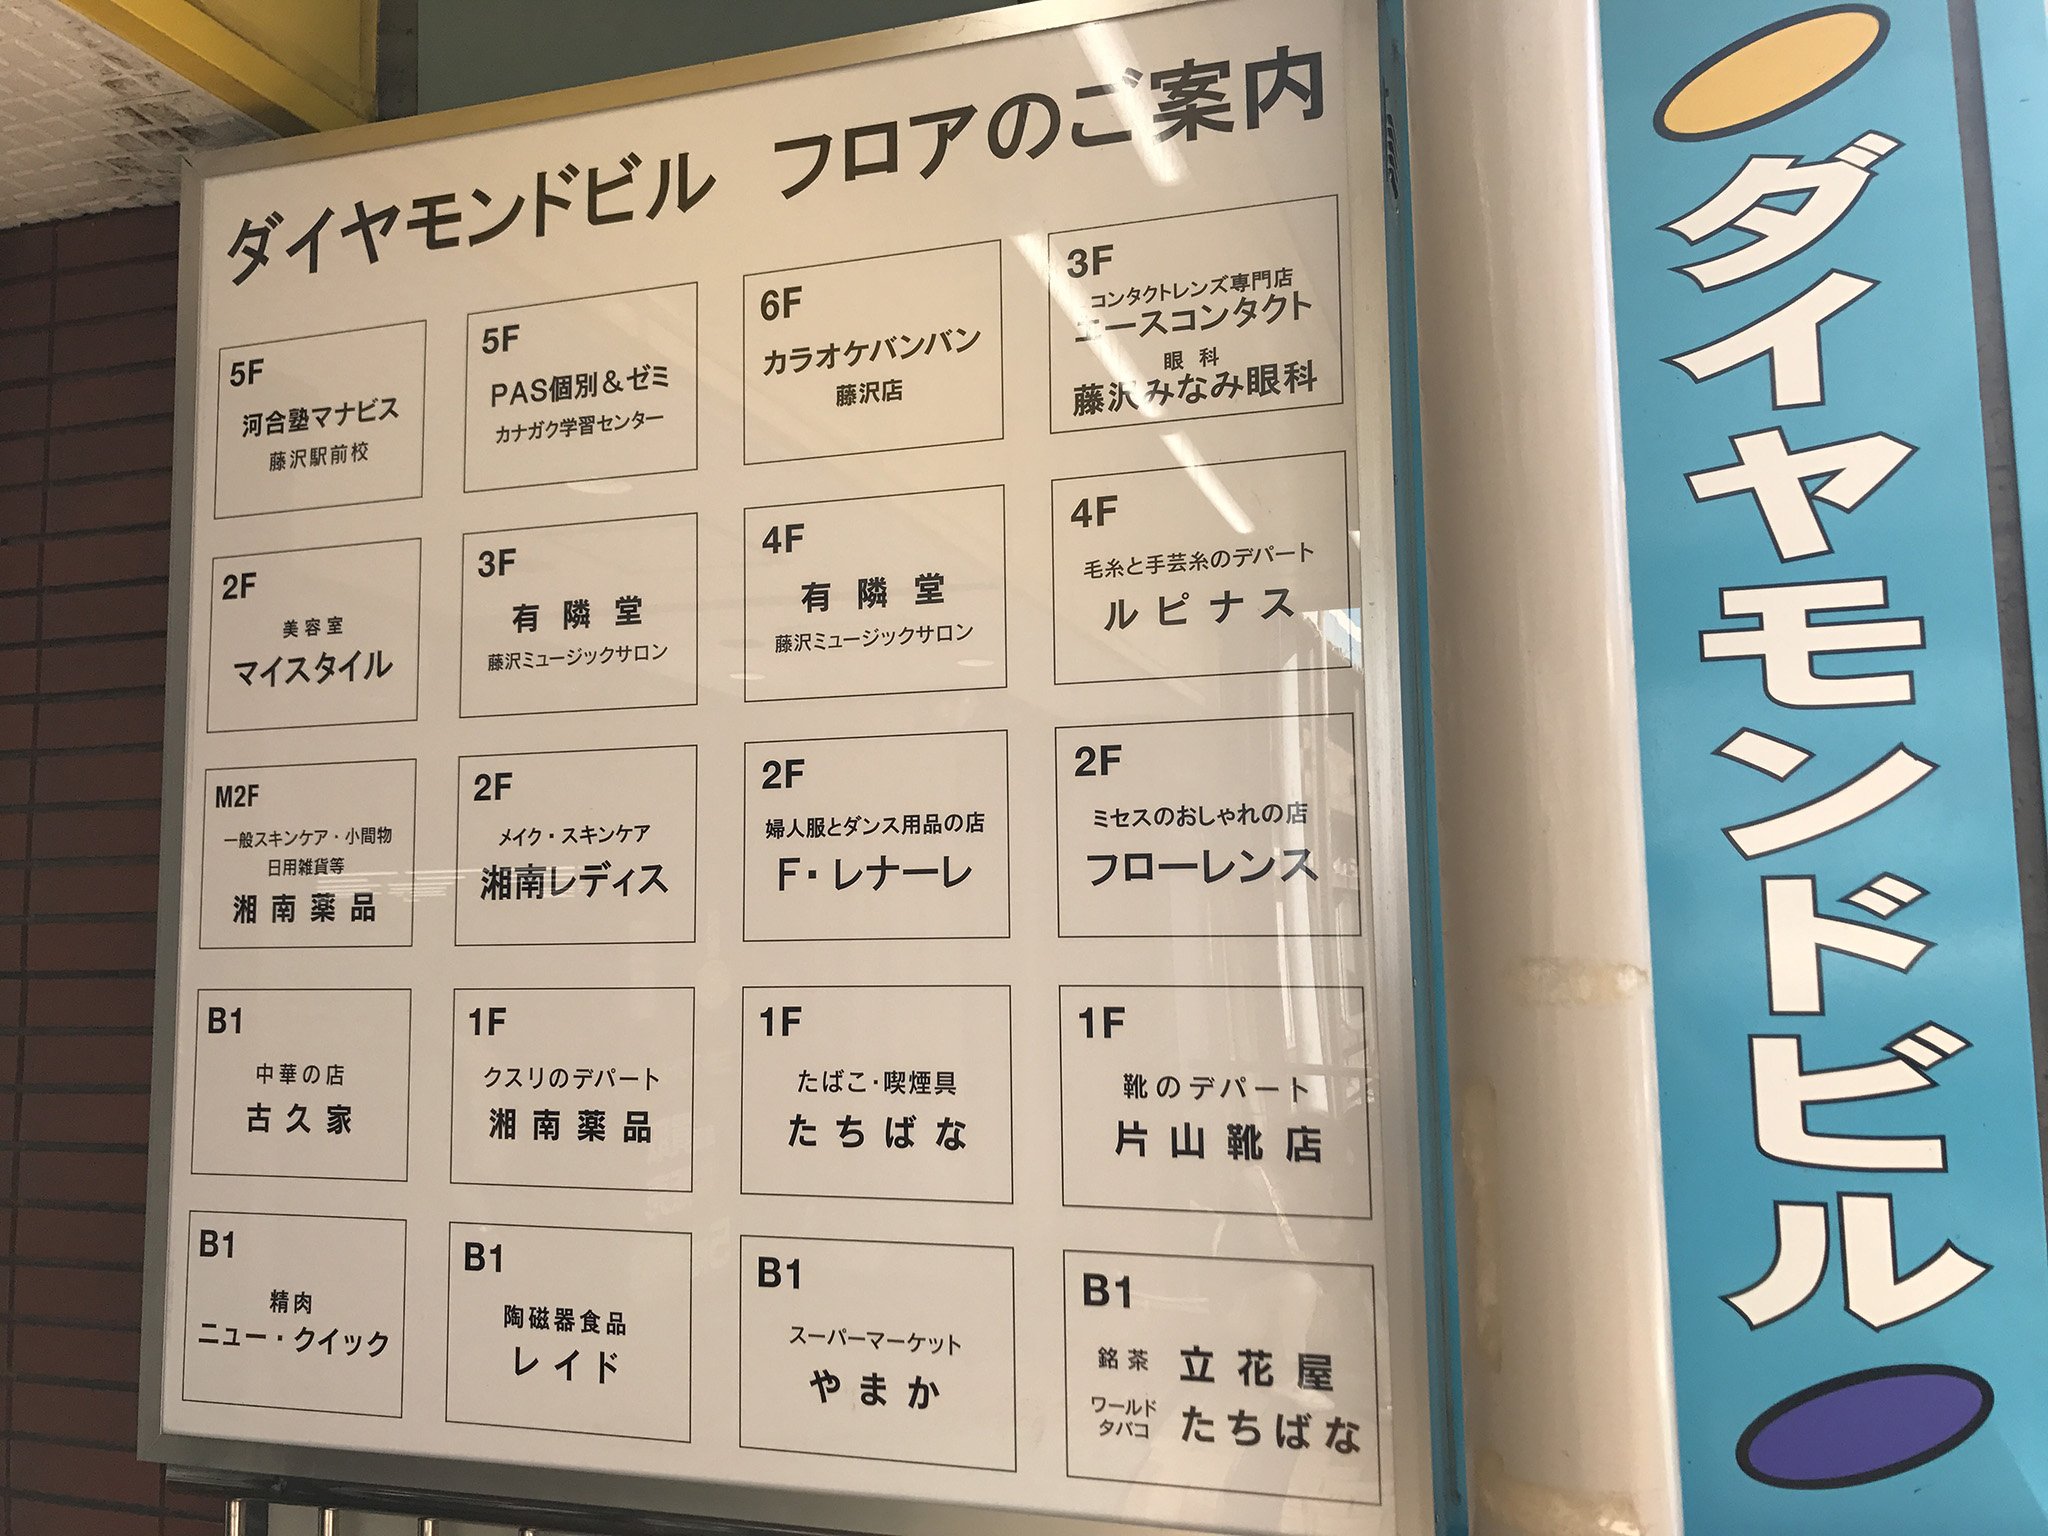 ダイヤモンドビル フロアのご案内
5F
河合塾マナビス
藤沢駅前校
5F
PAS個別&ゼミ
カナガク学習センター
6F
カラオケバンバン
藤沢店
3F
コンタクトレンズ専門店
エースコンタクト
眼科
藤沢みなみ眼科
2F
美容室
マイスタイル
3F
有隣堂
藤沢ミュージックサロン
4F
有隣堂
藤沢ミュージックサロン
4F
毛糸と手芸糸のデパート
ルピナス
M2F
一般スキンケア・小間物
日用雑貨等
湘南薬品
2F
メイク・スキンケア
湘南レディス
2F
婦人服とダンス用品の店
F・レナーレ
2F
ミセスのおしゃれの店
フローレンス
B1
中華の店
古久家
1F
クスリのデパート
湘南薬品
1F
たばこ・喫煙具
たちばな
1F
靴のデパート
片山靴店
B1
精肉
ニュー・クイック
B1
陶磁器食品
レイド
B1
スーパーマーケット
やまか
B1
銘茶 立花屋
ワールド
タバコ たちばな
ダイヤモンドビル